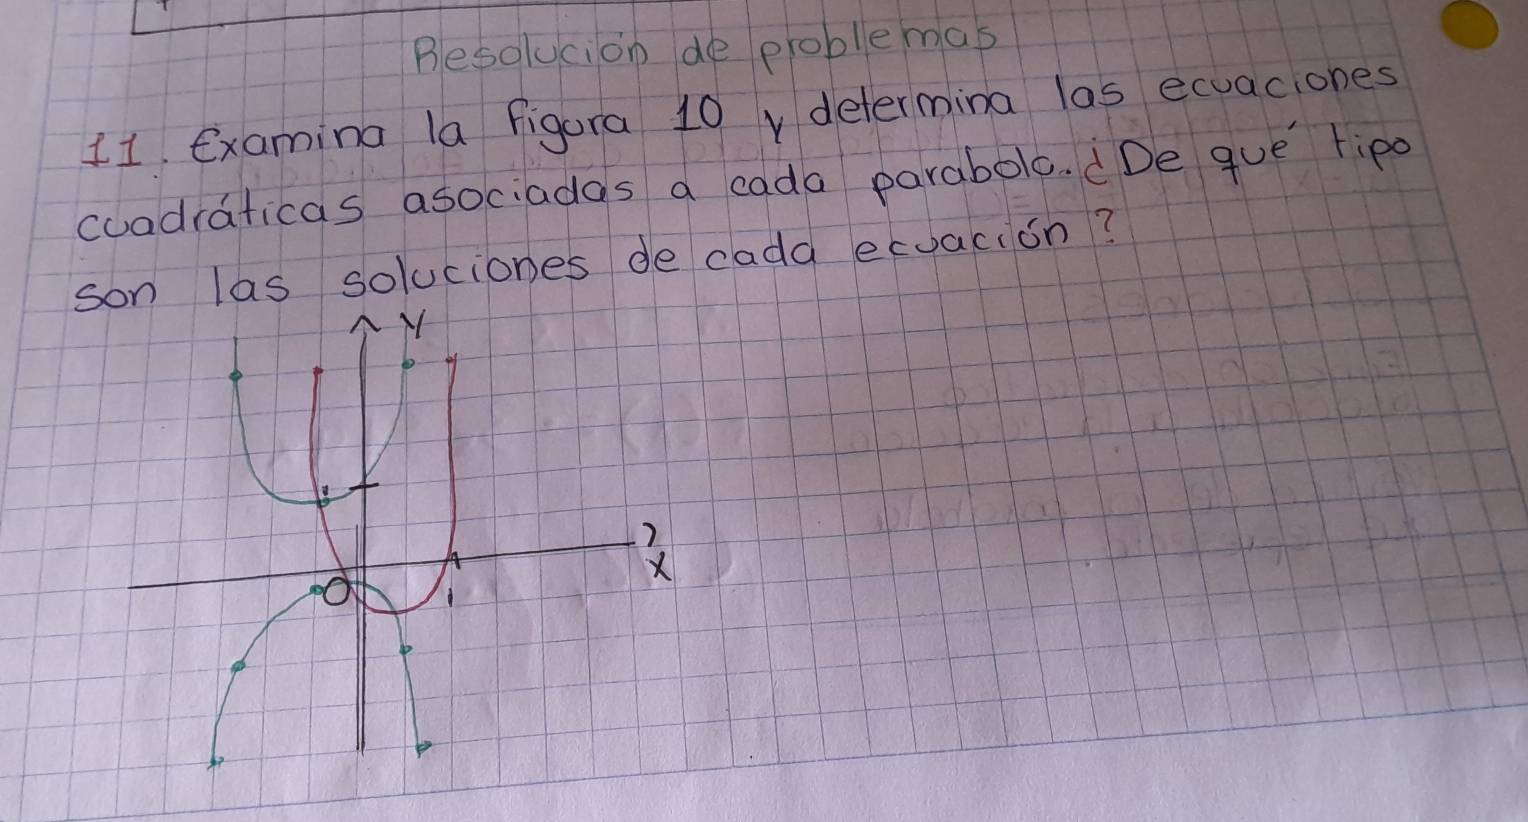 Resolución de problemas
11. Examina la figura 10 y determina las ecuaciones
cuadráticas asociadas a cada parabola. ¿De qué tipo
son las soluciones de cada ecuación?
Y
X
O
1